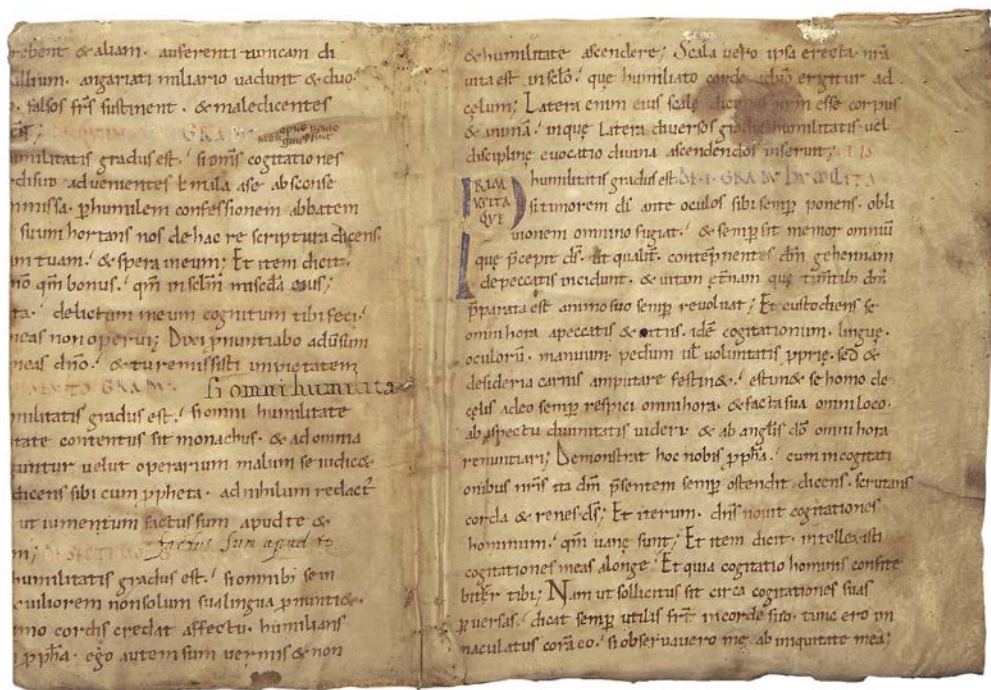 rebent & aliam. auferenti tunicam di
allium. angariati miliario vadunt & duo.
o. falsos frs sustinent. & maledicentes
GRADV
umilitatis gradus est. si oms cogitationes
cordi suo advenientes t mala a se absconse
mmissa. p humilem confessionem abbatem
suum hortans nos de hac re scriptura dicens.
am tuam. & spera in eum; Et item dicit.
no qm bonus. qm in sclm miscda eius;
ta. delictum meum cognitum tibi feci.
meas non operui; Dixi pnuntiabo adusum
meas dno. & tu remissisti impietatem
GRADV Si omni humilita
militatis gradus est. si omni humilitate
tate contentus sit monachus. & ad omnia
untur velut operarium malum se iudic&
dicens sibi cum ppheta. ad nihilum redact
ut iumentum factus sum apud te &
m; factus sum apud te
humilitatis gradus est. si omnibi sem
& viliorem non solum sua lingua pnunti&.
imo cordis credat affectu. humilians
ppha. ego autem sum vermis & non
& humilitate ascendere; Scala vero ipsa erecta. nra
vita est in sclo. que humiliato corde a dno erigitur ad
celum; Latera enim eius scale dicimus nrm esse corpus
& animā. in que Latera diversos gradus humilitatis vel
discipline evocatio divina ascendendos inseruit;
humilitatis gradus est. DE .I. GRADV HVMILITA TIS
PRIM VS ITA QVE
si timorem di ante oculos sibi semp ponens. obli
vionem omnino fugiat. & semp sit memor omniū
que pcepit ds. ut qualit contepnentes dm gehennam
de peccatis incidunt. & vitam etnam que timtib dm
pparata est animo suo semp revolvat; Et custodiens se
omni hora a peccatis & vitiis. ide cogitationum. lingue.
oculorū. manuum. pedum vl voluntatis pprie. sed &
desideria carnis amputare festin&. estim& se homo de
celis a deo semp respici omni hora. & facta sua omni loco.
ab aspectu divinitatis videri & ab anglis do omni hora
renuntiari; Demonstrat hoc nobis ppha. cum in cogitati
onibus nris ita dm psentem semp ostendit dicens. scrutans
corda & renes. ds; Et iterum. dns novit cogitationes
hominum. qm vane sunt; Et item dicit. intellexisti
cogitationes meas a longe. Et quia cogitatio hominis confite
bitur tibi; Nam ut sollicitus sit circa cogitationes suas
pversas. dicat semp utilis frt in corde suo. tunc ero im
maculatus corā eo. si observavero me ab iniquitate mea;